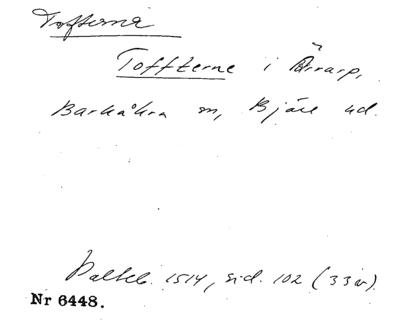 Tofterna
Toffterne i Ärrarp,
Barkåkra sn, Bjäre hd.
Palteb. 1514, sid. 102 (33 v).
Nr 6448.